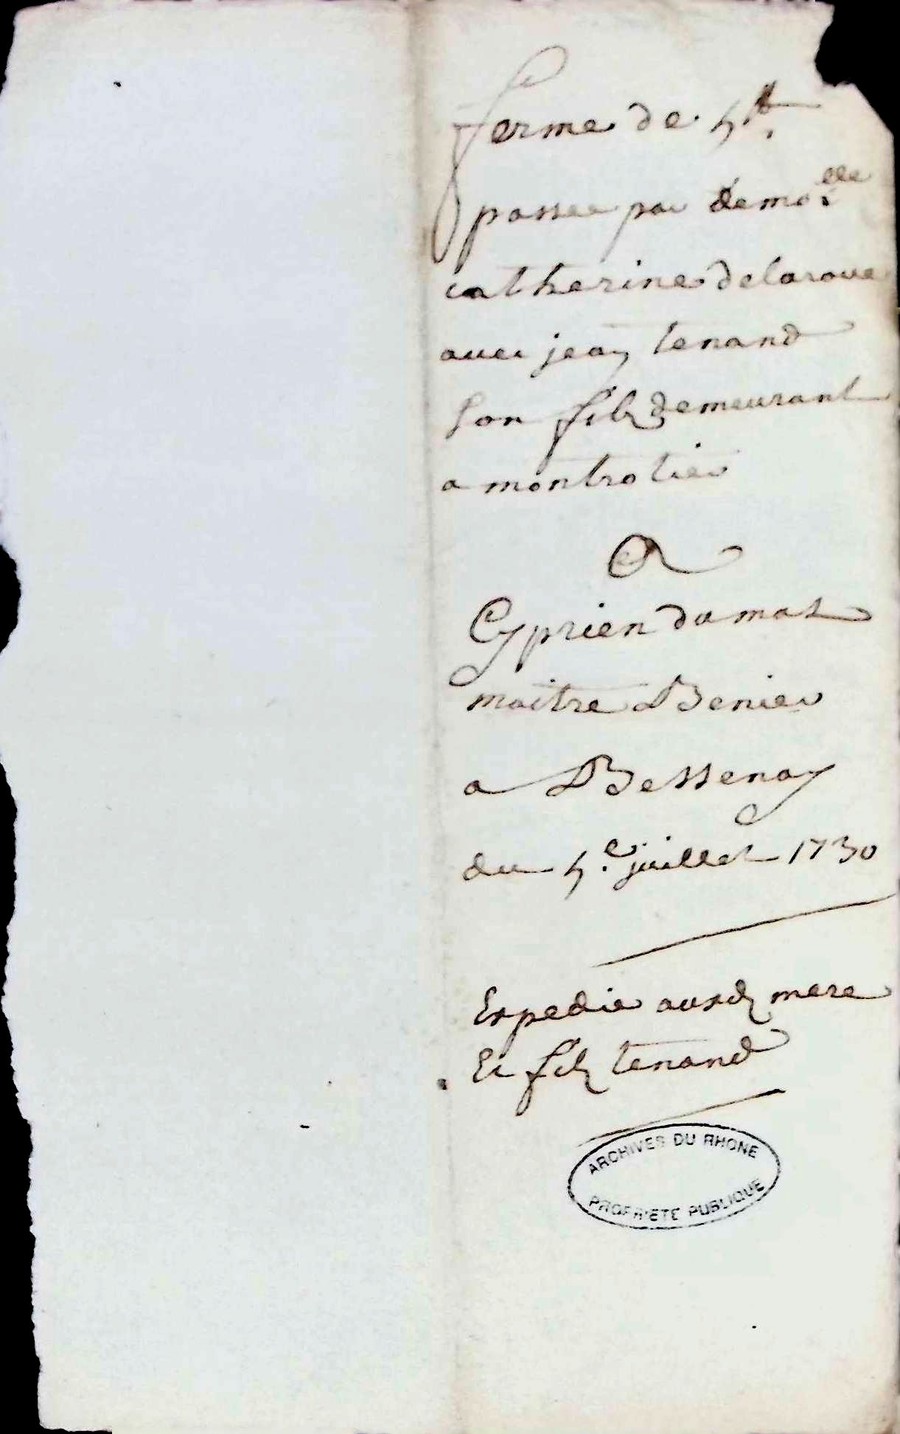 ferme de 5tt.
passee par demo.lle
catherine delaroue
avec jean tenand
son filz demeurant
a montrotier
A
Cyprien damas
maitre Benier
a Bessenay
du 5.e juillet 1730
Expedie ausdz mere
Et filz tenand
ARCHIVES DU RHONE
PROPRIETE PUBLIQUE